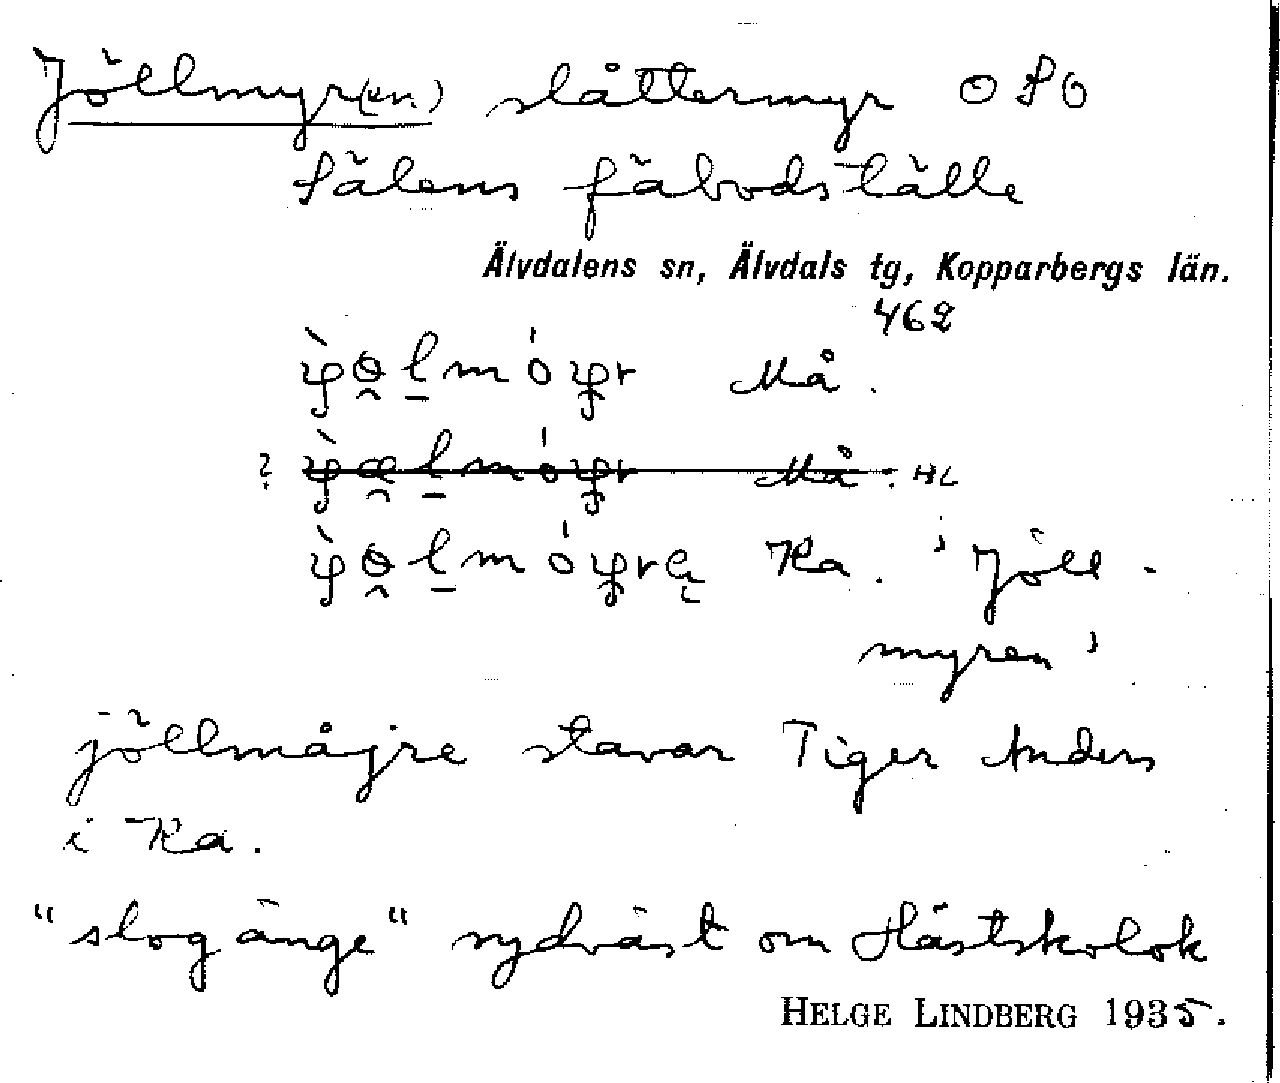 Jöllmyr(en) slåttermyr O SO
Sälens fäbodställe
Älvdalens sn, Älvdals tg, Kopparbergs län.
462
Må.
? Må. HL
Ka. 'Jöll-
myren'
jöllmåjre stavar Tiger Anders
i Ka.
"slogänge" sydväst om Hästskolok
HELGE LINDBERG 1935.